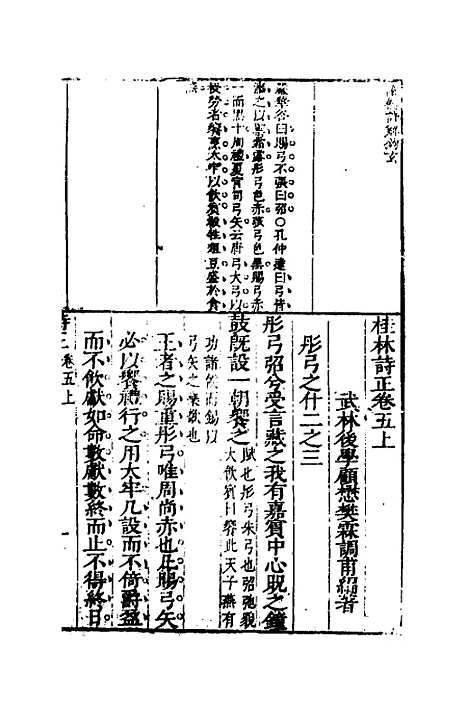 桂林詩正卷五上
武林後學顧懋樊霖調甫纂著
彤弓之什二之三
彤弓弨兮受言藏之我有嘉賓中心貺之鐘
鼓既設一朝饗之
賦也彤弓朱弓也弨弛貌
大飲賓曰饗此天子燕有
功諸侯而錫以
弓矢之樂歌也
王者之賜重彤弓唯周尚赤也凡賜弓矢
必以饗禮行之用大牢几設而不倚爵盈
而不飲獻如命數獻數終而止不得終日
卷五上
嚴華谷曰賜弓不張曰弨○孔仲達曰弓皆
漆之以禦霜露彤弓色赤玈弓色黑賜弓赤
一而黑十周禮夏官司弓矢云唐弓大弓以
授勞者饗烹太牢以飲賓殽牲俎豆盛於食